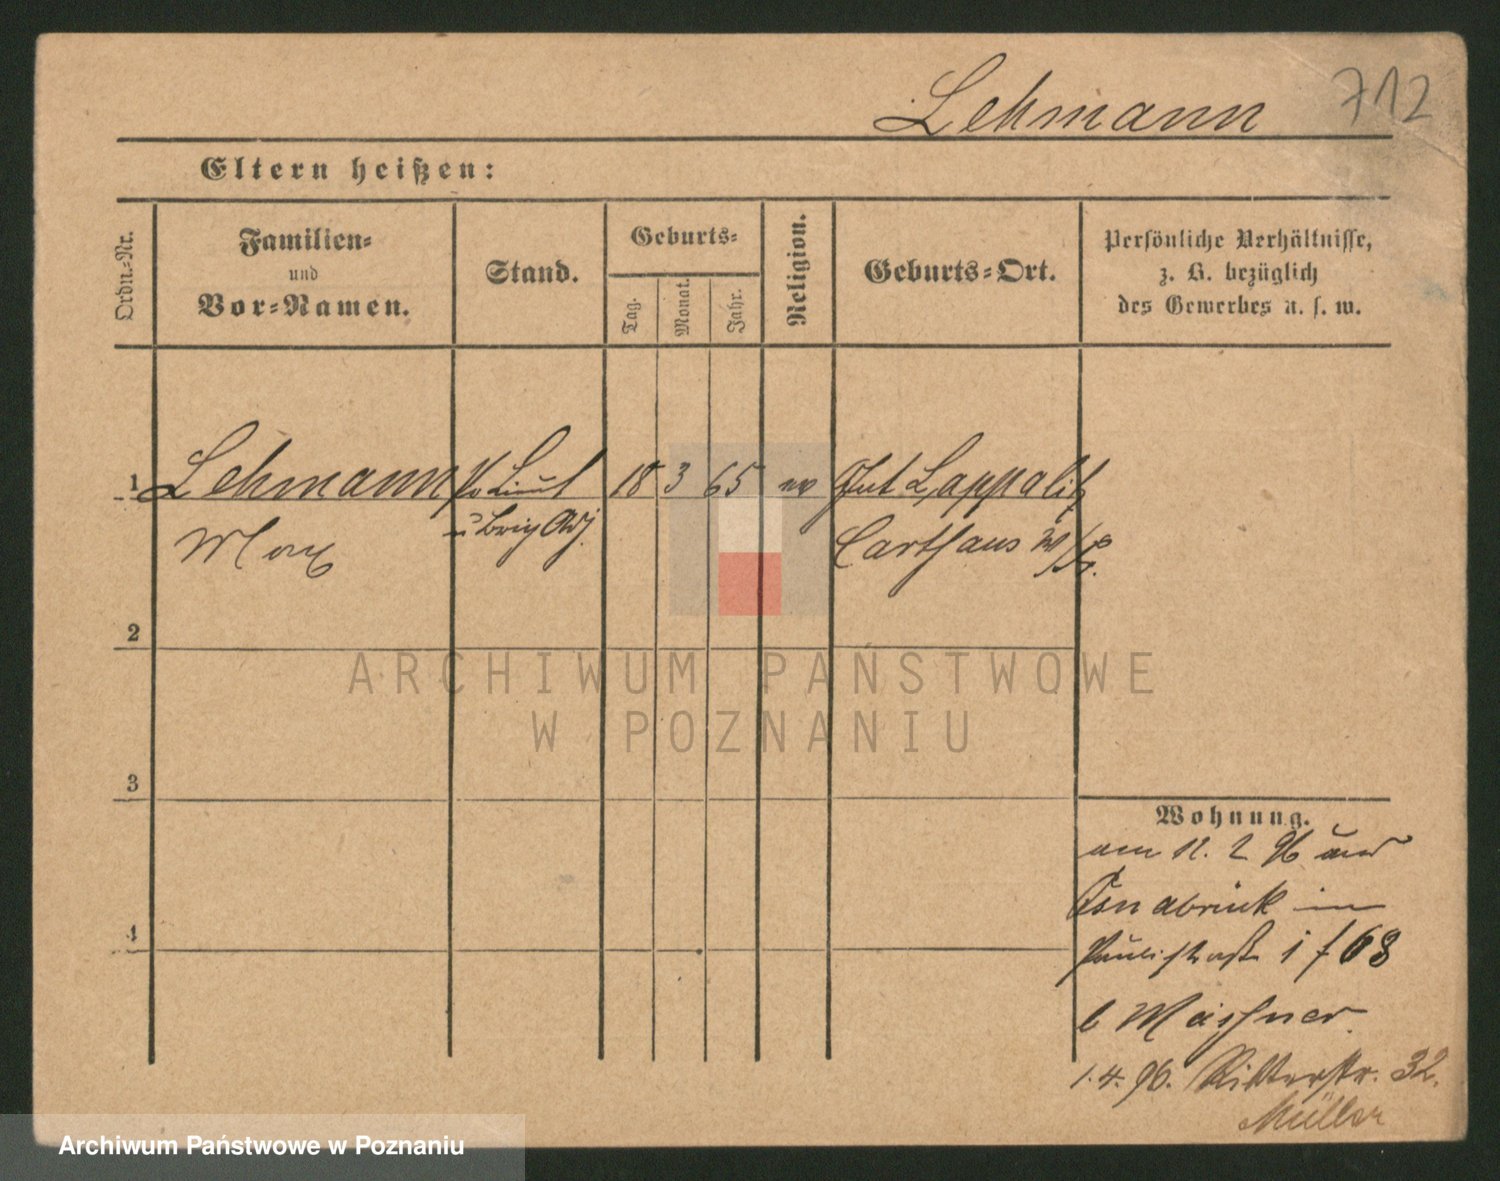 Lehmann 712
Eltern heißen:
Ordn.-Nr.
Familien-
und
Vor-Namen.
Stand.
Geburts-
Tag.
Monat.
Jahr.
Religion.
Geburts-Ort.
Persönliche Verhältnisse,
z. B. bezüglich
des Gewerbes u. s. w.
1 Lehmann Pr Lieut 18 3 65 ev Gut Lappalitz
Max u Brig Adj. Carthaus W/Pr.
2
ARCHIWUM PAŃSTWOWE
W POZNANIU
3
Wohnung.
am 12. 2 96 aus
Osnabrück in
Paulistraße 1 f 68
b Meißner
4
1.4.96. Ritterstr. 32.
Müller
Archiwum Państwowe w Poznaniu